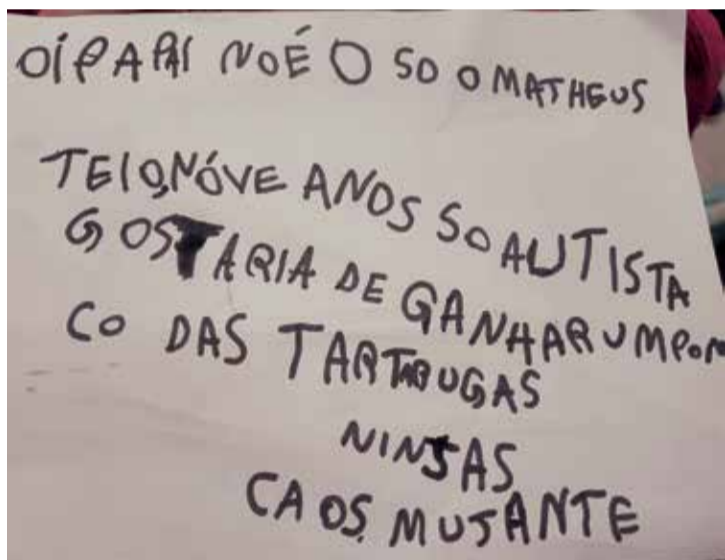 OÍ PAPAI NOÉ O SO O MATHEUS
TEIO NÓVE ANOS SO AUTISTA
GOSTARIA DE GANHAR UM
CO DAS TARTARUGAS
NINJAS
CAOS MUTANTE